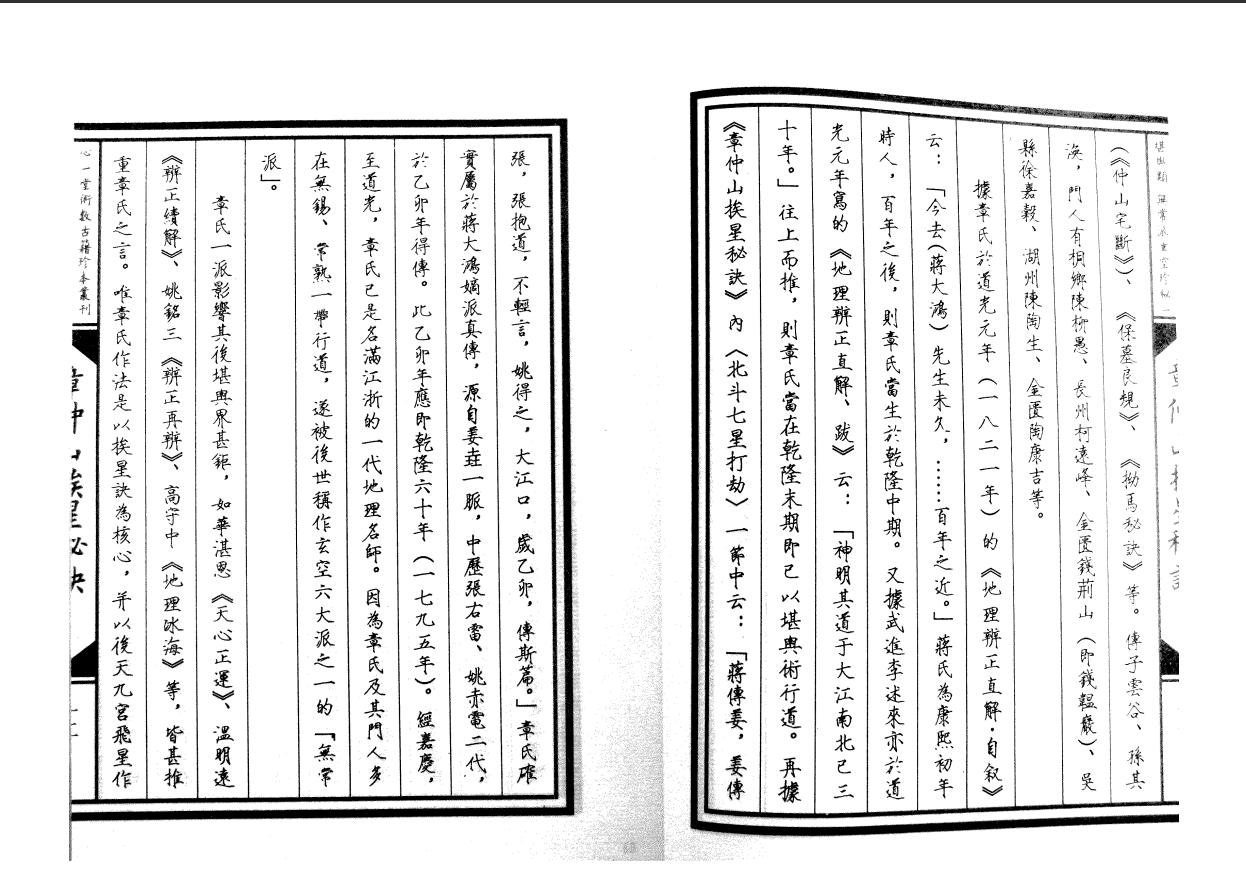 堪輿類 無常派玄空珍秘
《仲山宅斷》)、《保墓良規》、《拗馬秘訣》等。傳子雲谷、孫其
渙,門人有桐鄉陳柳愚、長州柯遠峰、金匱錢荊山(即錢韞巖)、吳
縣徐嘉穀、湖州陳陶生、金匱陶康吉等。
據章氏於道光元年(一八二一年)的《地理辨正直解·自敘》
云:「今去(蔣大鴻)先生未久,……百年之近。」蔣氏為康熙初年
時人,百年之後,則章氏當生於乾隆中期。又據武進李述來亦於道
光元年寫的《地理辨正直解、跋》云:「神明其道于大江南北已三
十年。」往上而推,則章氏當在乾隆末期即已以堪輿術行道。再據
《章仲山挨星秘訣》內〈北斗七星打劫〉一節中云:「蔣傳姜,姜傳
張,張抱道,不輕言,姚得之,大江口,歲乙卯,傳斯篇。」章氏確
實屬於蔣大鴻嫡派真傳,源自姜垚一脈,中歷張右雷、姚赤電二代,
於乙卯年得傳。此乙卯年應即乾隆六十年(一七九五年)。經嘉慶,
至道光,章氏已是名滿江浙的一代地理名師。因為章氏及其門人多
在無錫、常熟一帶行道,遂被後世稱作玄空六大派之一的「無常
派」。
章氏一派影響其後堪輿界甚鉅,如華湛恩《天心正運》、溫明遠
《辨正續解》、姚銘三《辨正再辨》、高守中《地理冰海》等,皆甚推
重章氏之言。唯章氏作法是以挨星訣為核心,并以後天九宮飛星作
心一堂術數古籍珍本叢刊
章仲山挨星秘訣